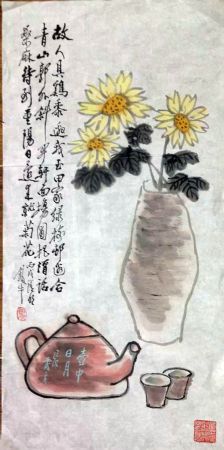 故人具鷄黍邀我至田家綠樹邨邊合
青山郭外斜開軒面場圃把酒話
桑麻待到重陽日還來就菊花
壺中
日月